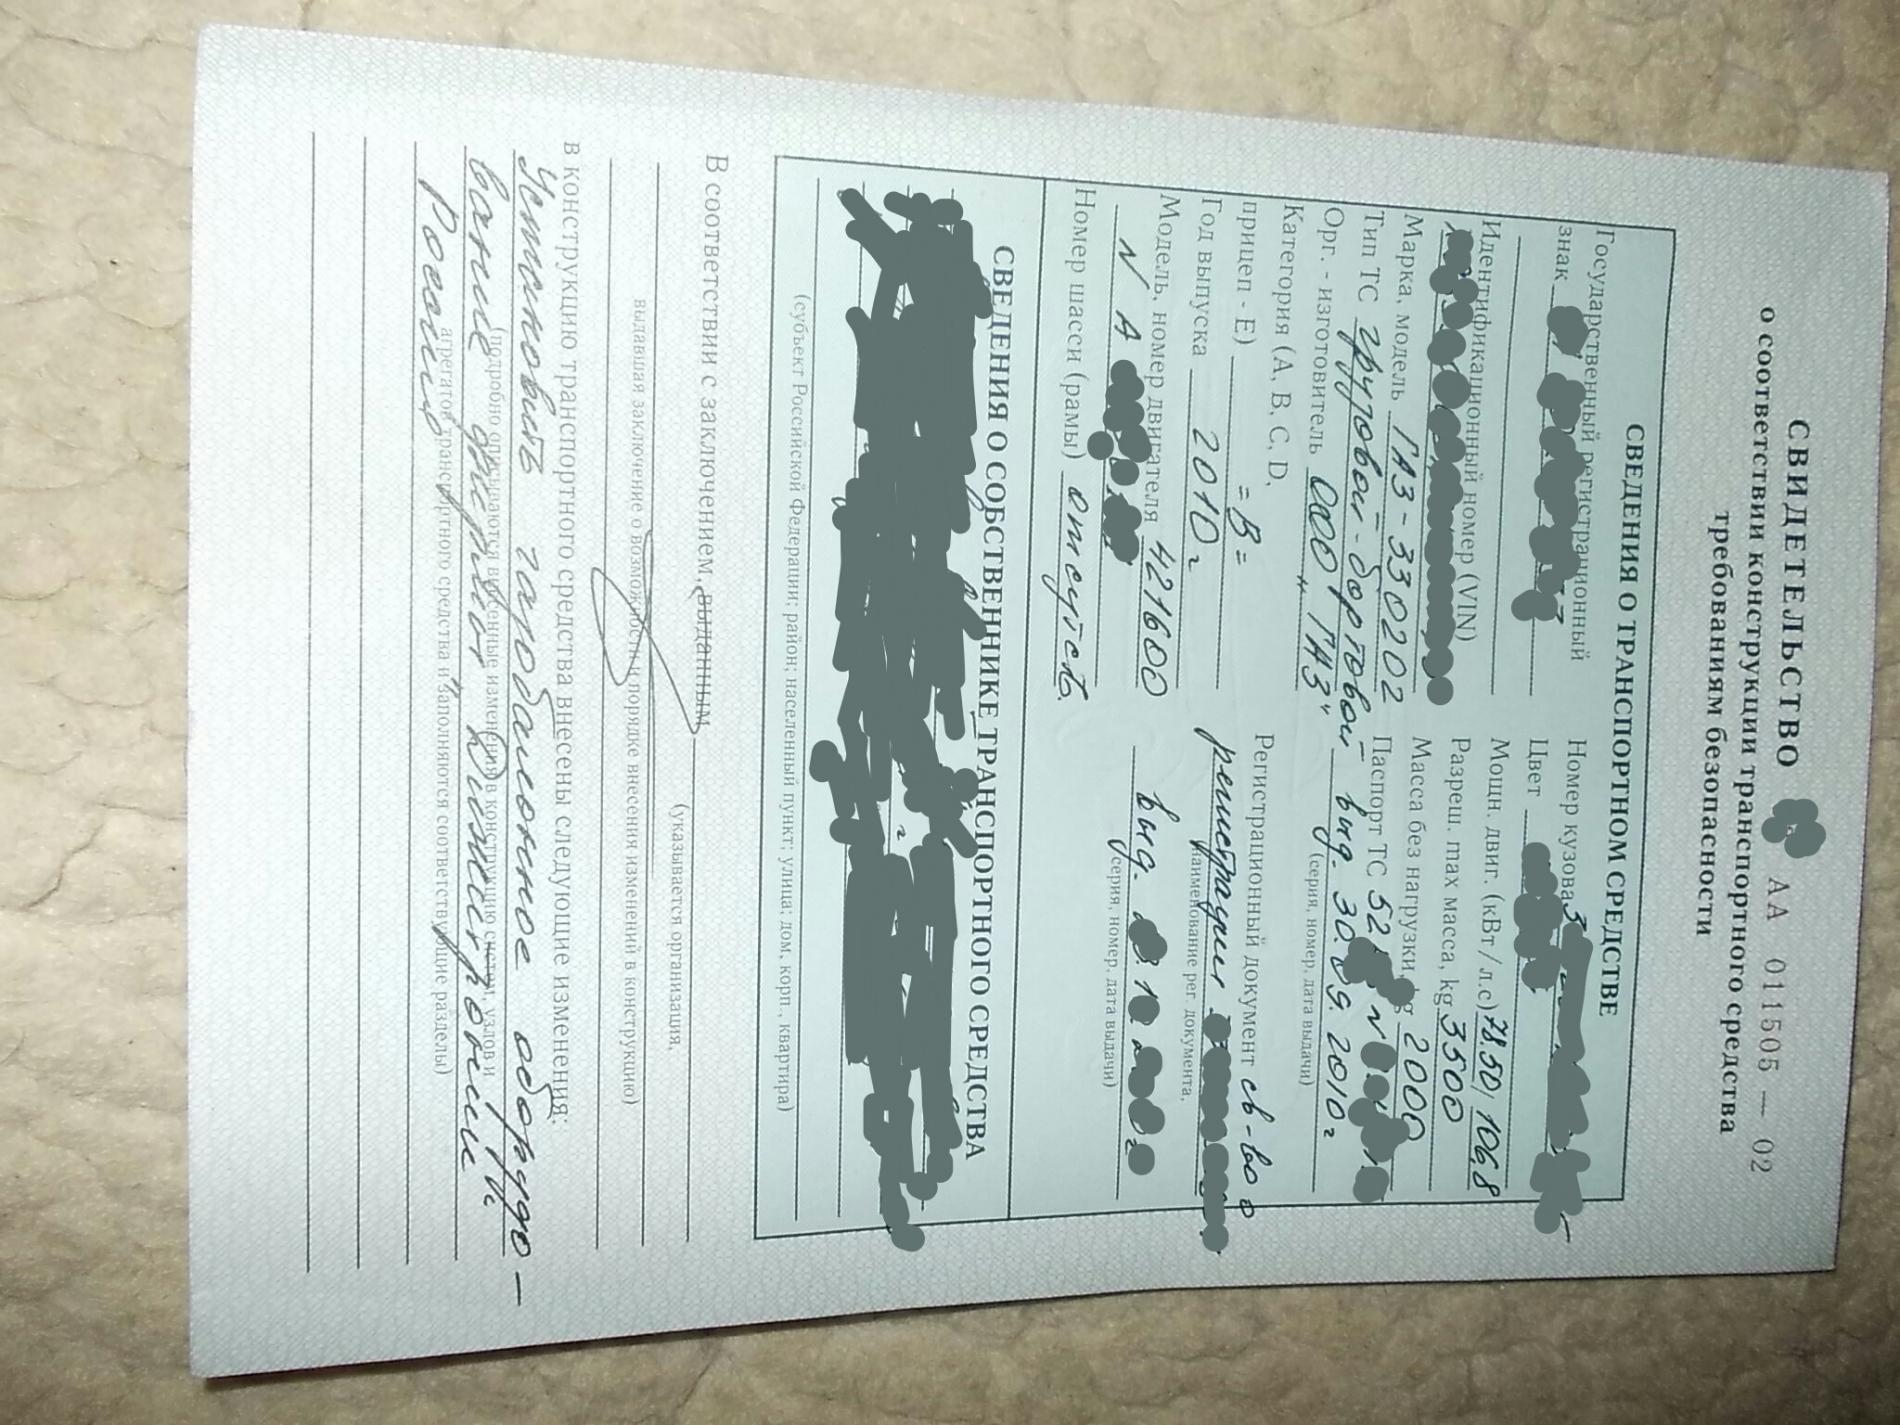 СВИДЕТЕЛЬСТВО АА 011505 — 02
о соответствии конструкции транспортного средства
требованиям безопасности
СВЕДЕНИЯ О ТРАНСПОРТНОМ СРЕДСТВЕ
Государственный регистрационный
знак
Идентификационный номер (VIN)
Марка, модель ГАЗ-330202
Тип ТС грузовой-бортовой
Орг. - изготовитель ООО "ГАЗ"
Категория (A, B, C, D,
прицеп - E) =B=
Год выпуска 2010г
Модель, номер двигателя 421600
N A
Номер шасси (рамы) отсутств.
Номер кузова
Цвет
Мощн. двиг. (кВт / л.с) 78.50/106,8
Разреш. max масса, kg 3500
Масса без нагрузки, kg 2000
Паспорт ТС 52 N
выд. 30.09.2010г
(серия, номер, дата выдачи)
Регистрационный документ св-во о
регистрации
наименование рег. документа,
выд.
серия, номер, дата выдачи)
СВЕДЕНИЯ О СОБСТВЕННИКЕ ТРАНСПОРТНОГО СРЕДСТВА
(субъект Российской Федерации; район; населенный пункт; улица; дом, корп., квартира)
В соответствии с заключением, выданным
(указывается организация,
выдавшая заключение о возможности и порядке внесения изменений в конструкцию)
в конструкцию транспортного средства внесены следующие изменения:
Установить газобаллонное оборудо-
(подробно описываются внесенные изменения в конструкцию систем, узлов и
вание фирмы
агрегатов транспортного средства и заполняются соответствующие разделы)
Россия